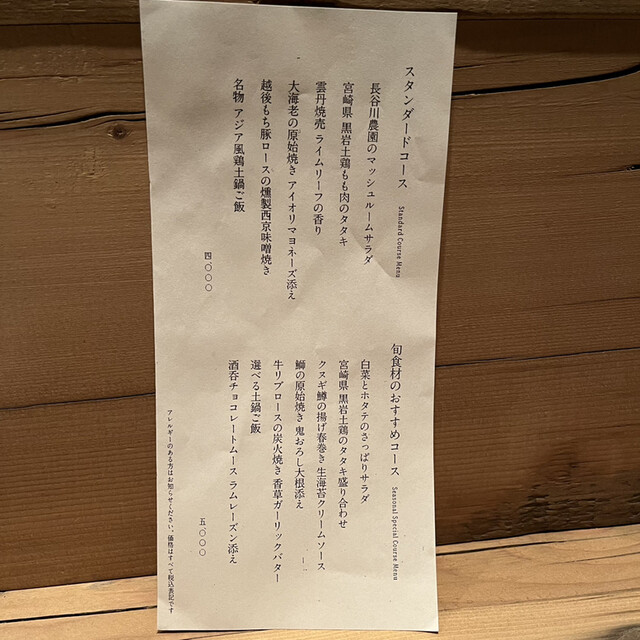 スタンダードコース Standard Course Menu
長谷川農園のマッシュルームサラダ
宮崎県 黒岩土鶏もも肉のタタキ
雲丹焼売 ライムリーフの香り
大海老の原始焼き アイオリマヨネーズ添え
越後もち豚ロースの燻製西京味噌焼き
名物 アジア風鶏土鍋ご飯
四、〇〇〇
旬食材のおすすめコース Seasonal Special Course Menu
白菜とホタテのさっぱりサラダ
宮崎県 黒岩土鶏のタタキ盛り合わせ
クヌギ鱒の揚げ春巻き 生海苔クリームソース
鰤の原始焼き 鬼おろし大根添え
牛リブロースの炭火焼き 香草ガーリックバター
選べる土鍋ご飯
酒呑チョコレートムース ラムレーズン添え
五、〇〇〇
アレルギーのある方はお知らせください。価格はすべて税込表記です